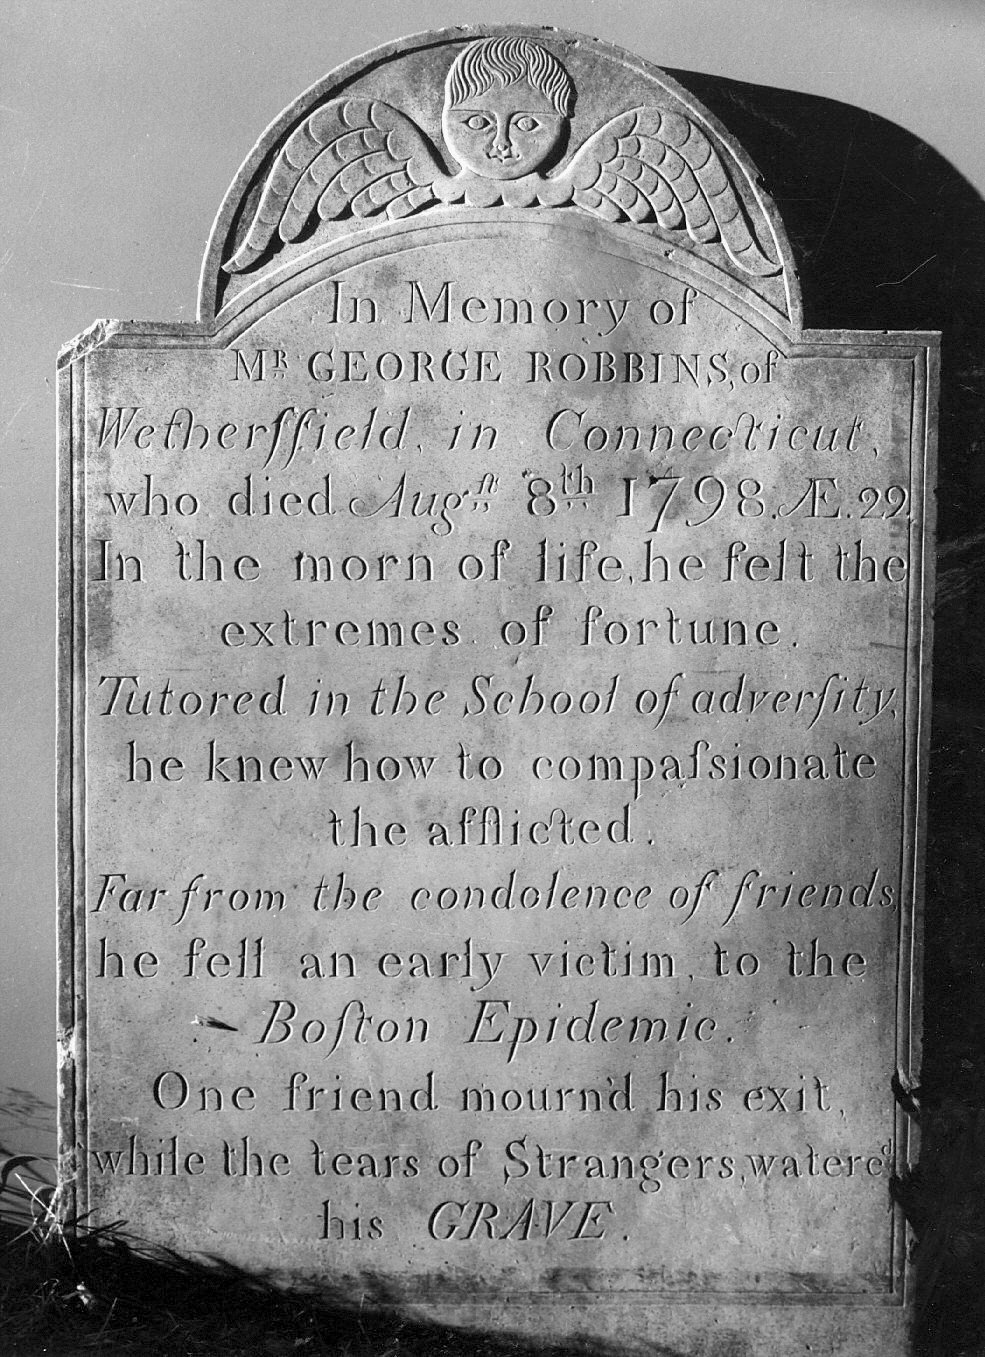 In Memory of
Mʀ GEORGE ROBBINS, of
Wetherſfield, in Connecticut,
who died Augſt 8th 1798. Æ. 29.
In the morn of life, he felt the
extremes of fortune.
Tutored in the School of adverſity,
he knew how to compaſsionate
the afflicted.
Far from the condolence of friends,
he fell an early victim, to the
Boſton Epidemic.
One friend mourn'd his exit,
while the tears of Strangers, watered
his GRAVE.